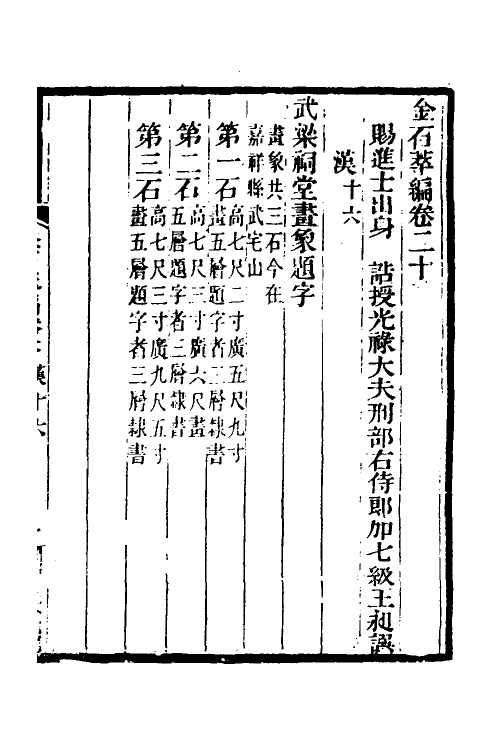 金石萃編卷二十
賜進士出身 誥授光祿大夫刑部右侍郎加七級王昶譔
漢十六
武梁祠堂畫象題字
畫象共三石今在
嘉祥縣武宅山
第一石高七尺二寸廣五尺九寸
畫五層題字者二層隸書
第二石高七尺三寸廣六尺畫
五層題字者三層隸書
第三石高七尺三寸廣九尺五寸
畫五層題字者三層隸書
漢十六